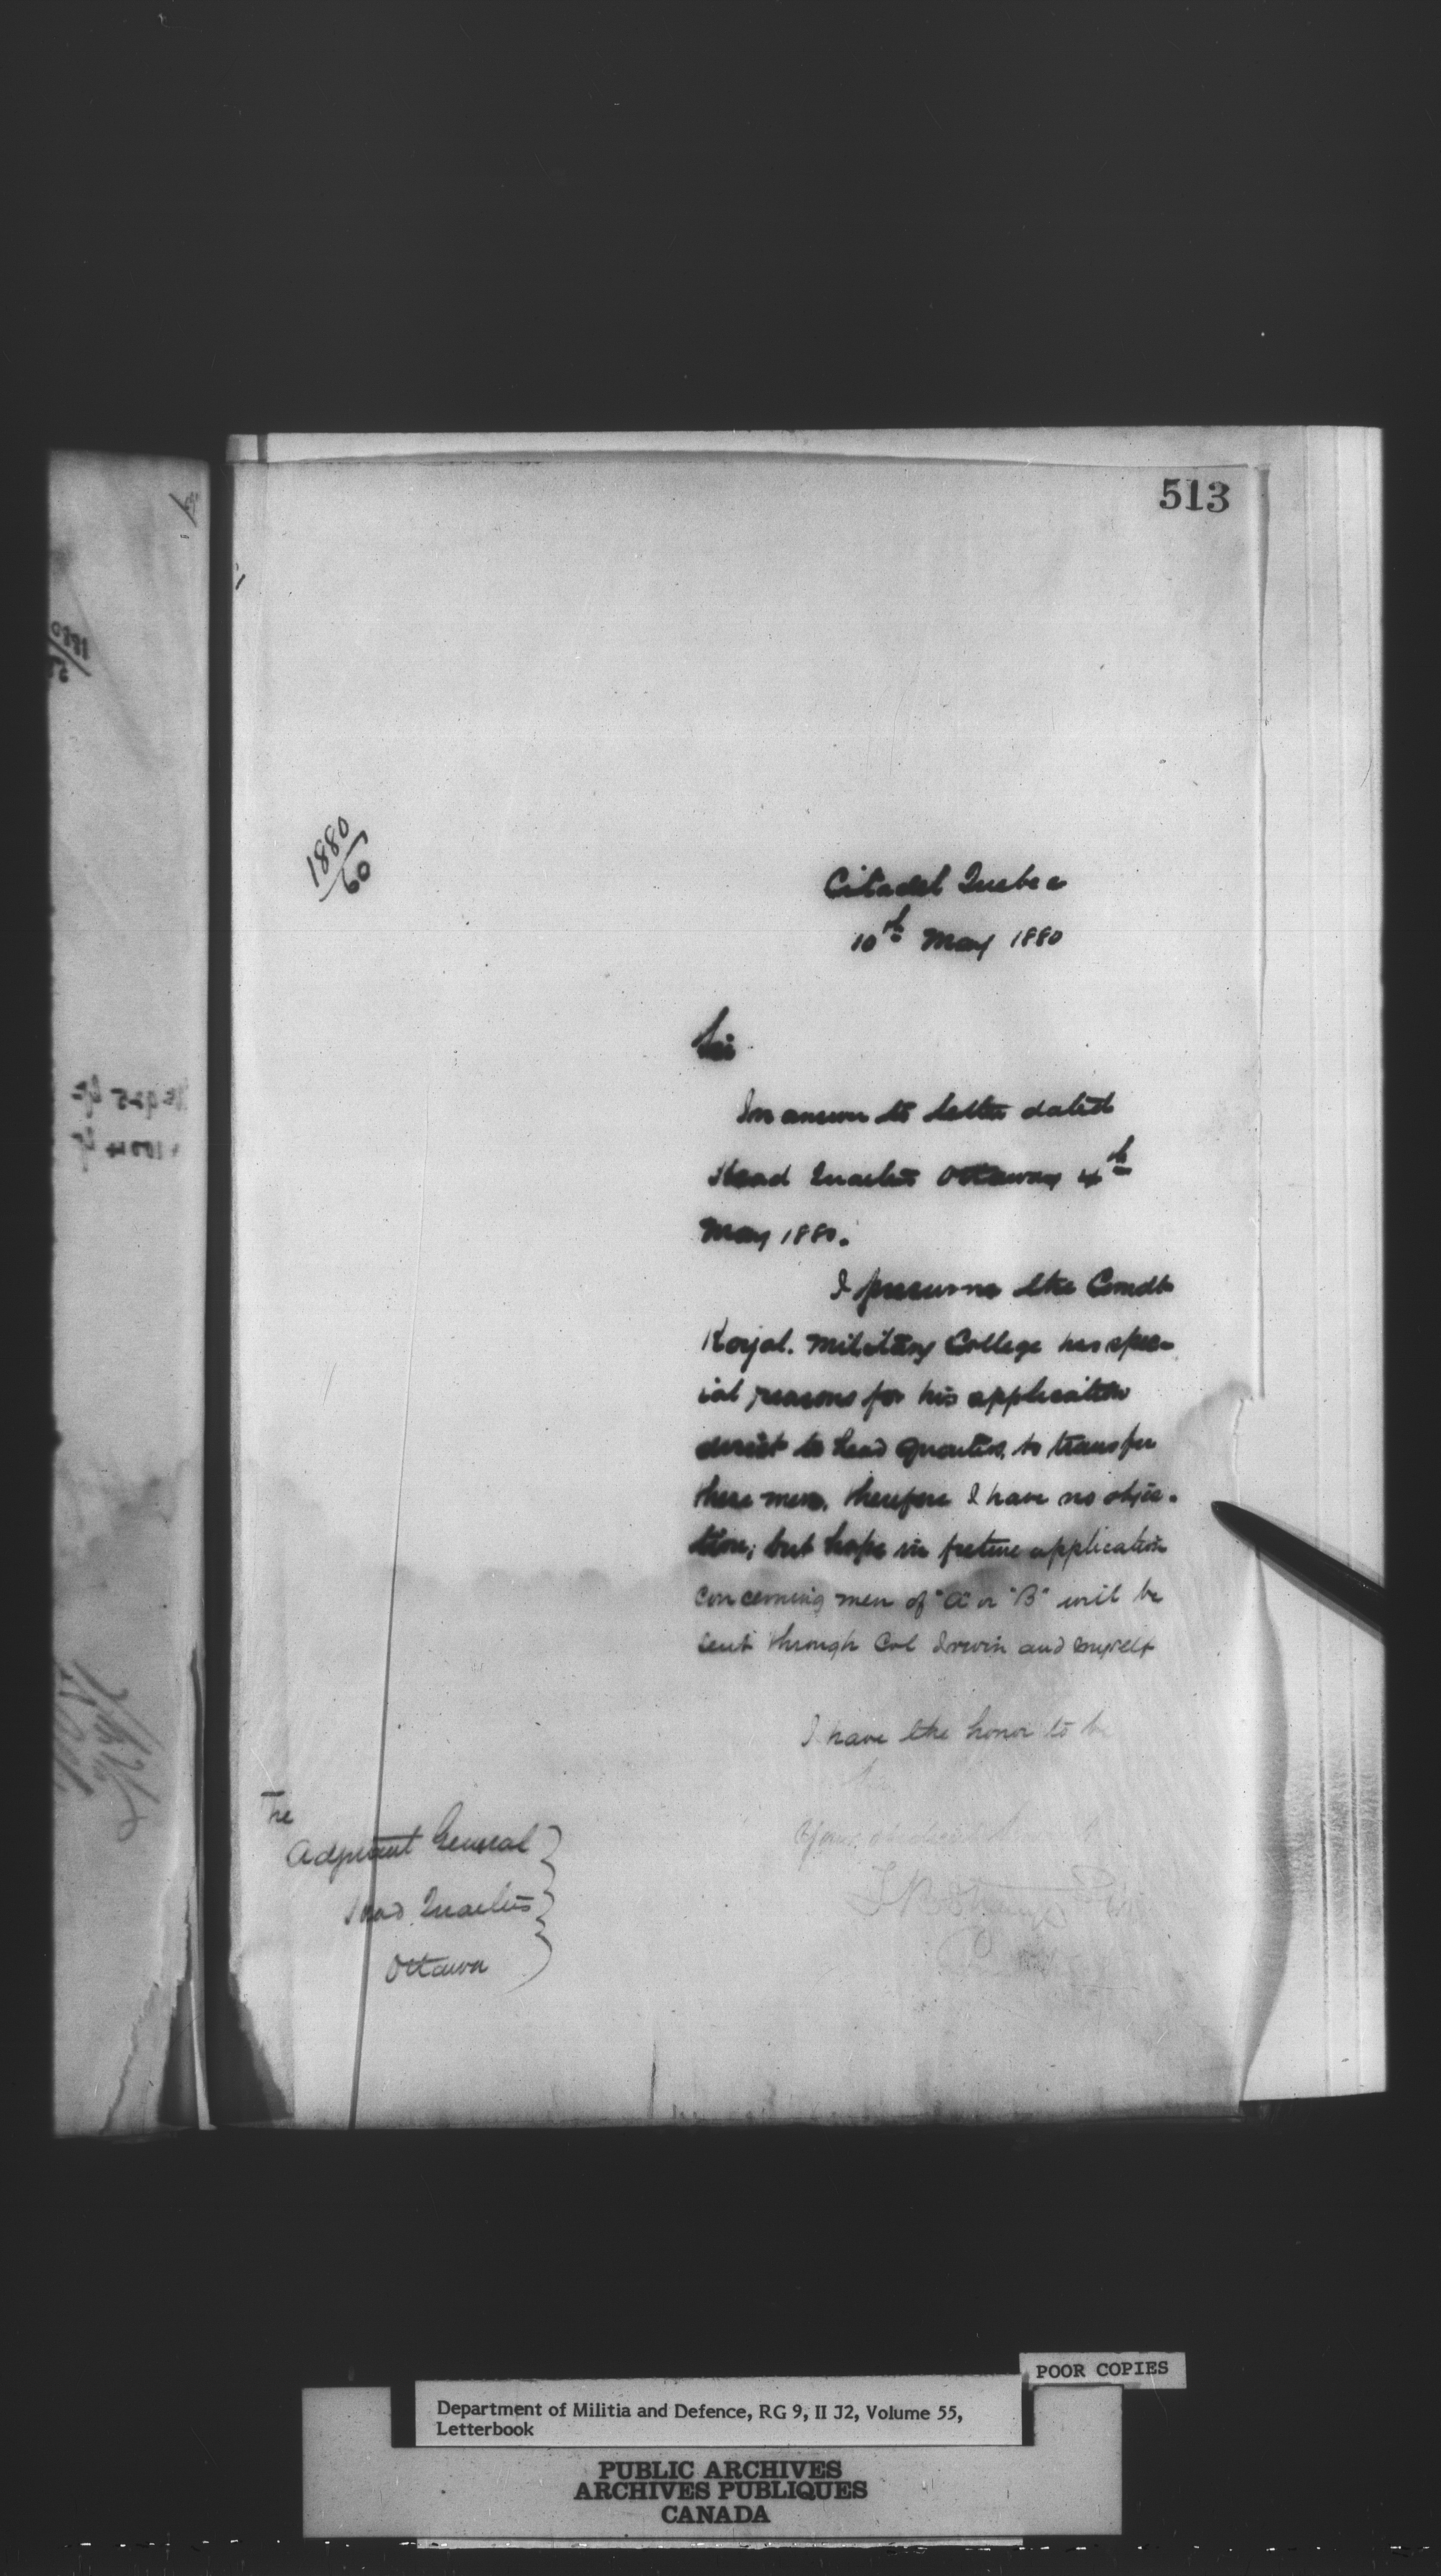 513
1880/60
Citadel Quebec
10th May 1880
Sir
In answer to letter dated
Head Quarters Ottawa 4th
May 1880.
I presume the Comdt
Royal. Military College has spec-
ial reasons for his application
direct to head quarters, to transfer
these men, therefore I have no objec-
tion; but hope in future application
concerning men of "A" or "B" will be
sent through Col Irwin and myself
I have the honor to be
Your obedient
T B Strange
The
Adjutant General
Head Quarters
Ottawa
POOR COPIES
Department of Militia and Defence, RG 9, II J2, Volume 55,
Letterbook
PUBLIC ARCHIVES
ARCHIVES PUBLIQUES
CANADA